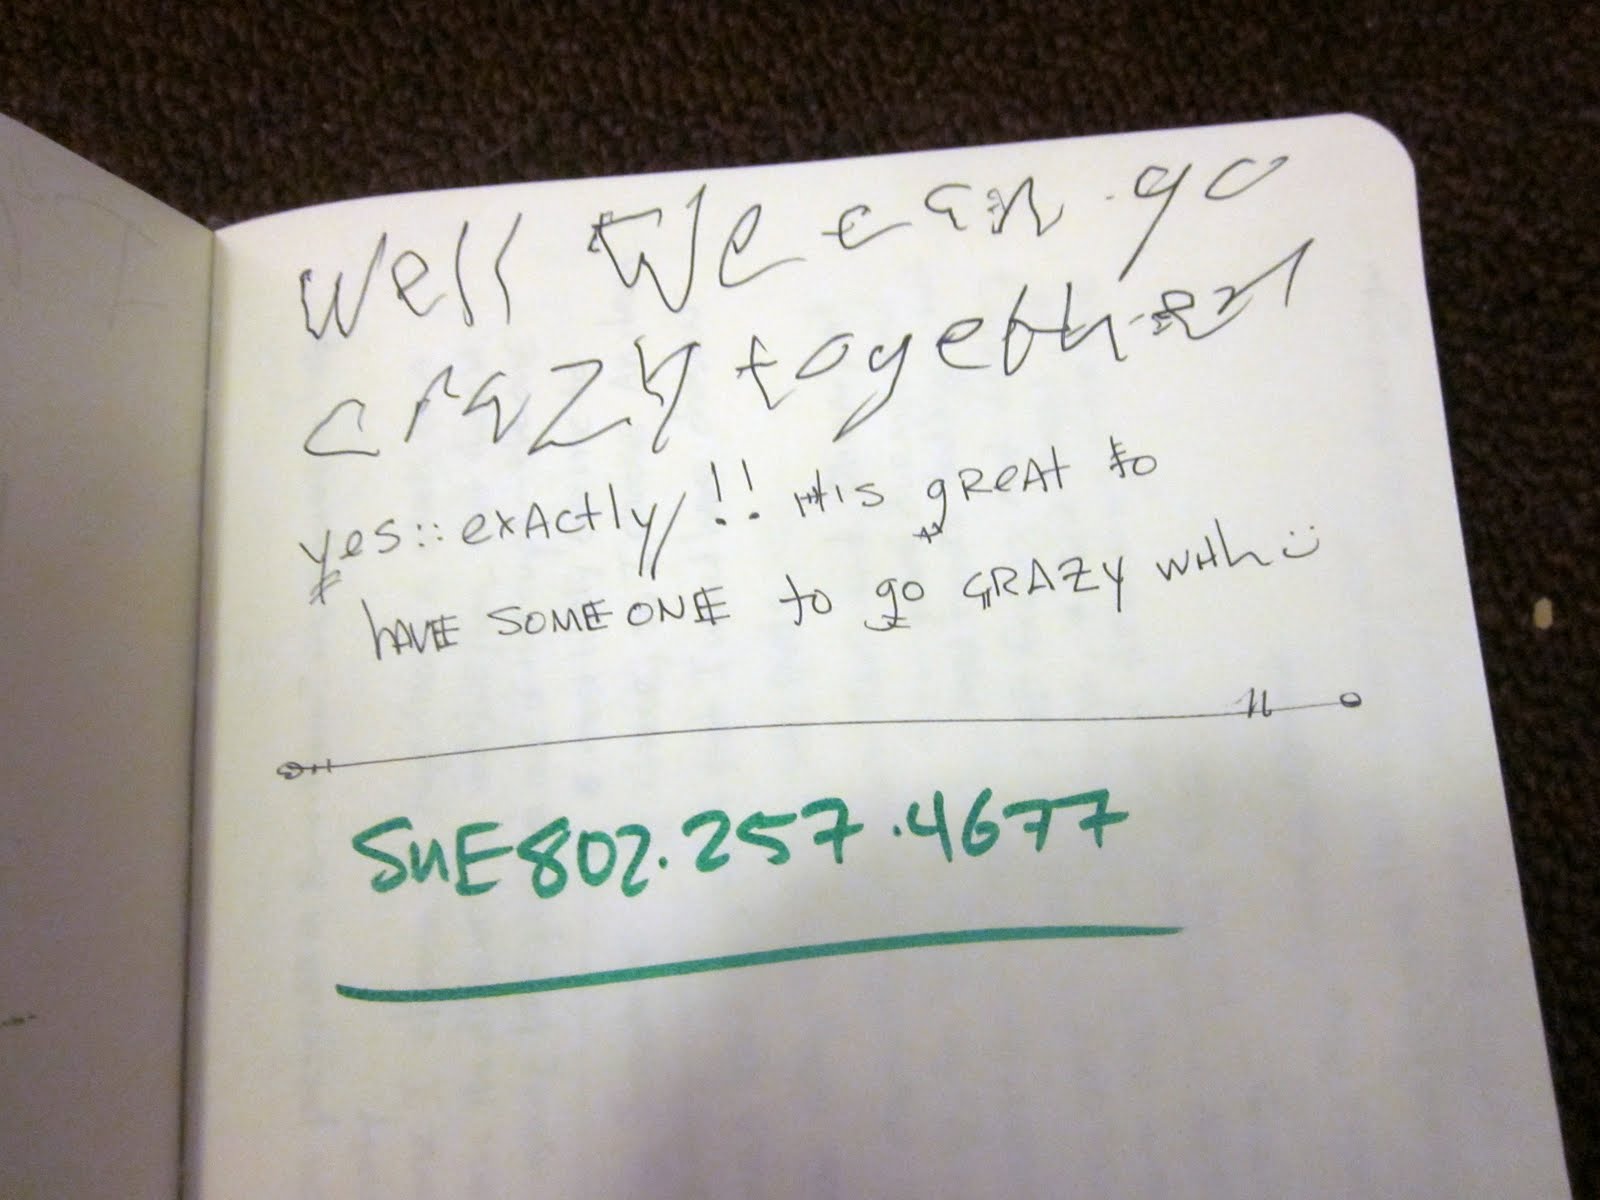 Well We can go
crazy together
yes:: exActly!! itis greAt to
hAVE SOMEONE to go CRAZY WitH :)
SuE 802.257.4677